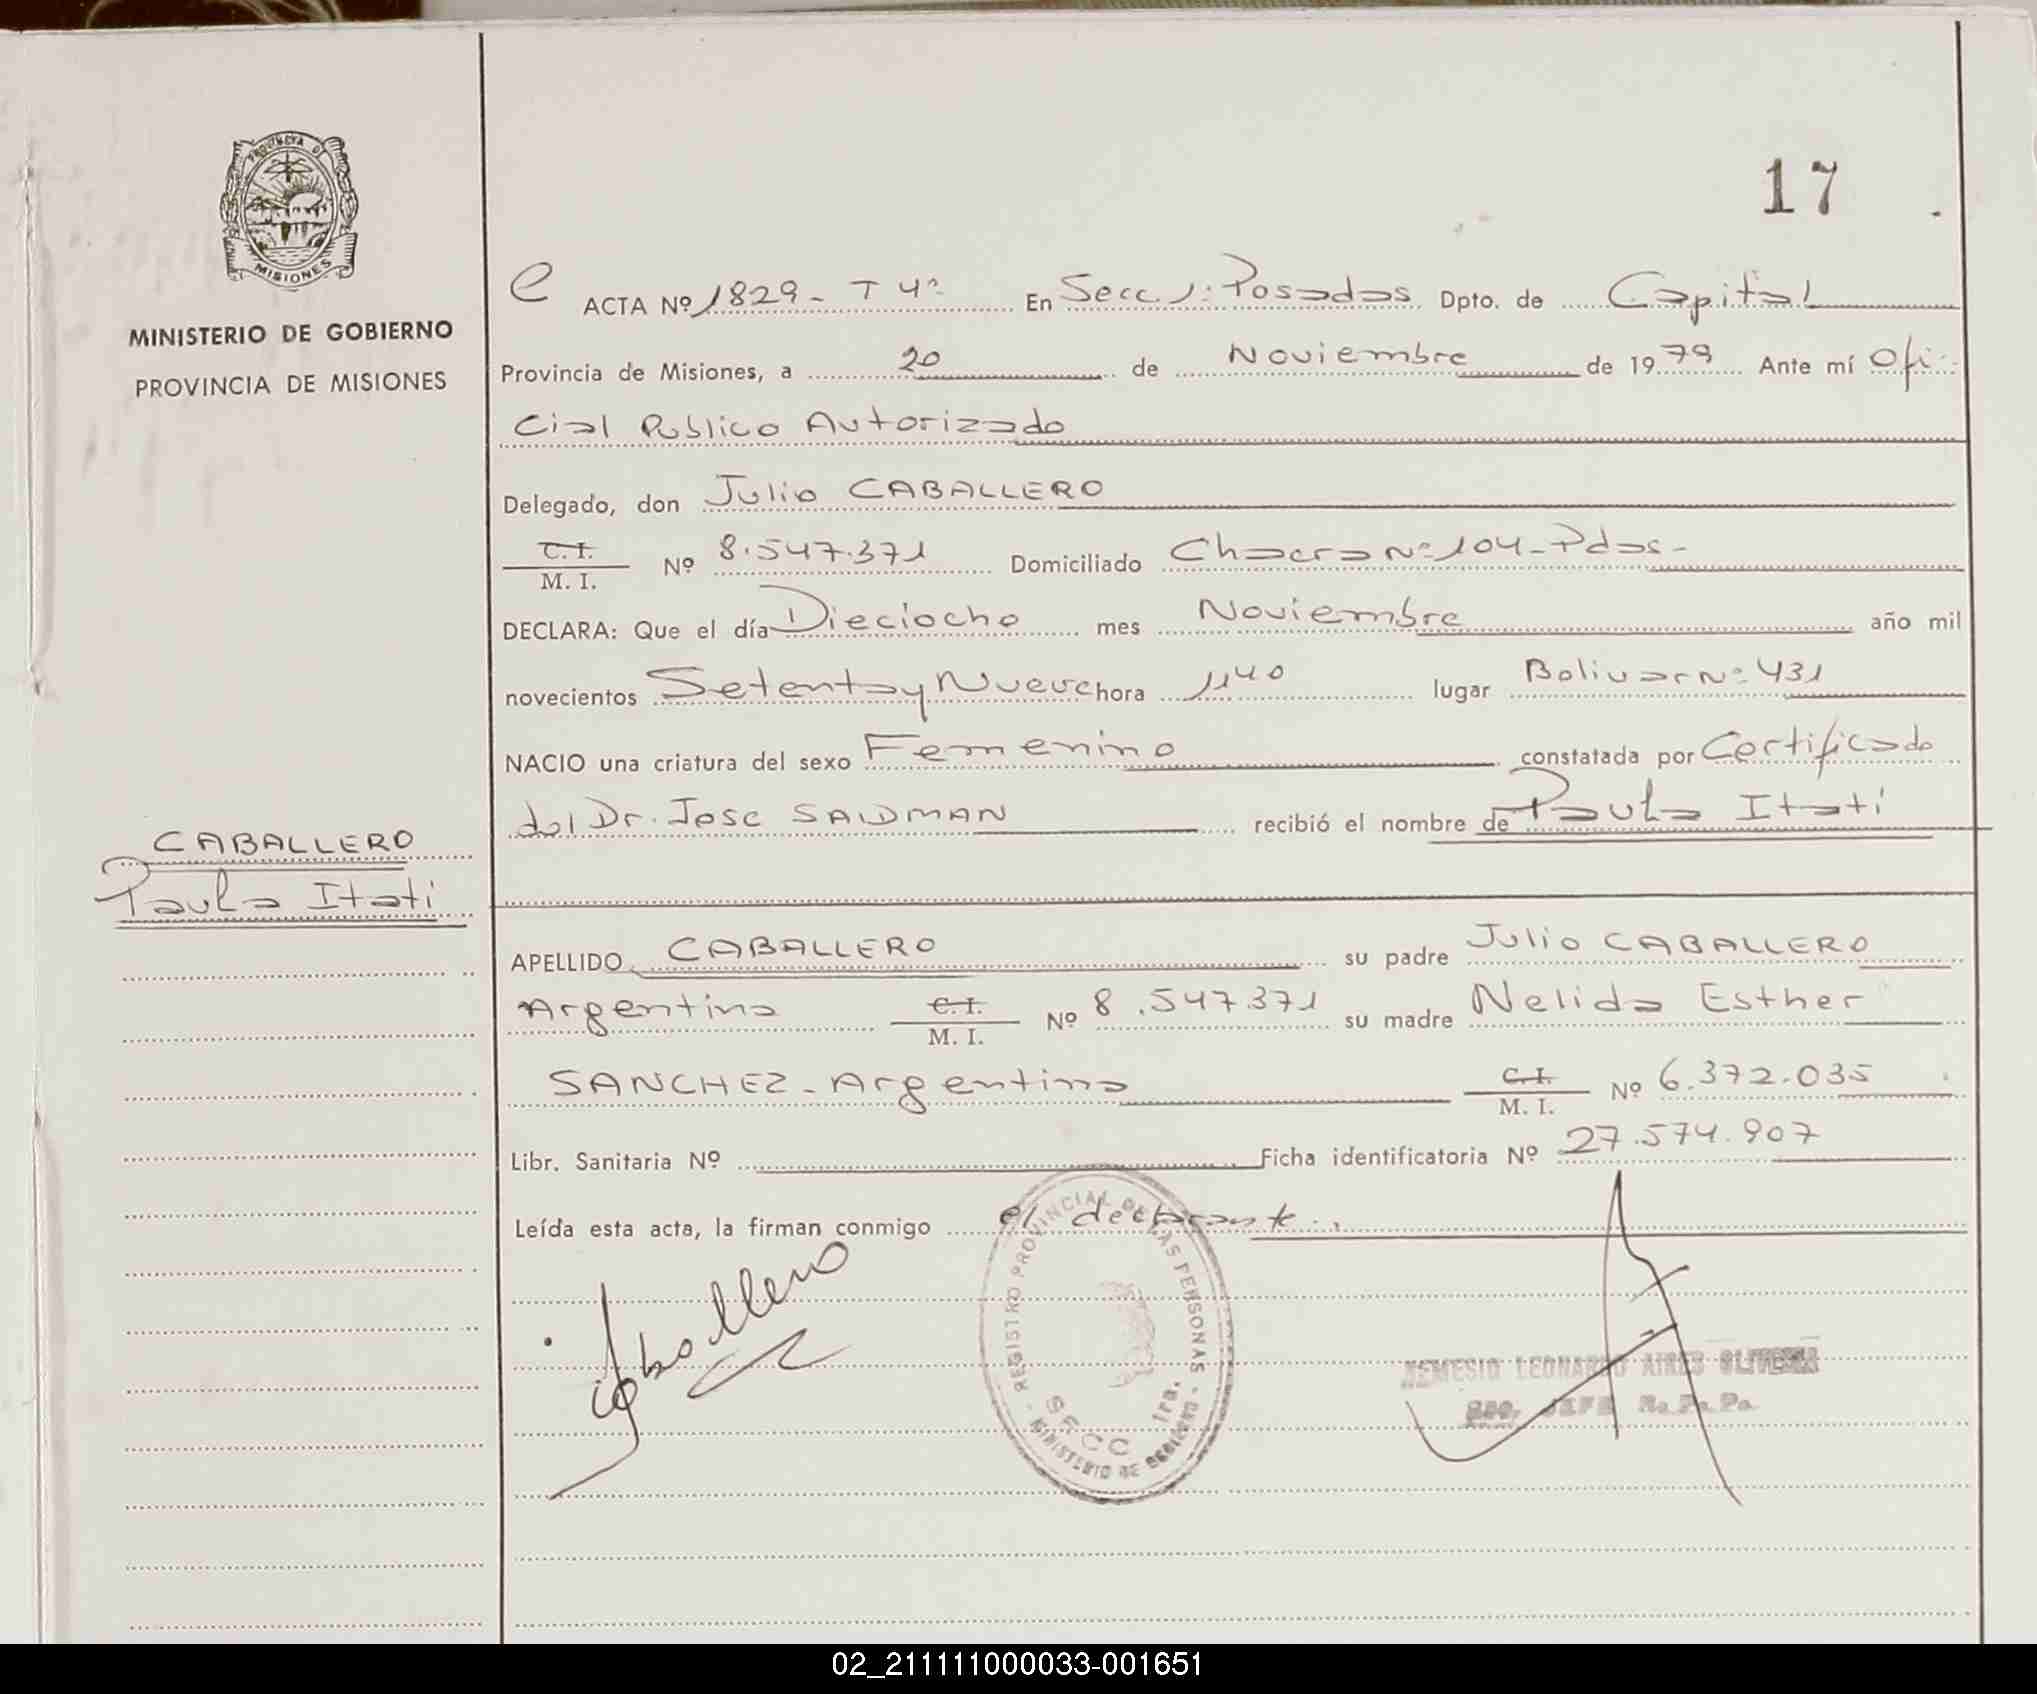 PROVINCIA DE
MISIONES
MINISTERIO DE GOBIERNO
PROVINCIA DE MISIONES
CABALLERO
Paula Itati
17
e ACTA Nº 1829 - T 4º En Secc. 1: Posadas Dpto. de Capital
Provincia de Misiones, a 20 de Noviembre de 1979 Ante mí Ofi-
cial Publico Autorizado
Delegado, don Julio CABALLERO
C.I. / M. I. Nº 8.547.371 Domiciliado Chacra Nº 104 - Pdas -
DECLARA: Que el día Dieciocho mes Noviembre año mil
novecientos Setenta y Nueve hora 1140 lugar Bolivar Nº 431
NACIO una criatura del sexo Femenino constatada por Certificado
del Dr. Jose SAIDMAN recibió el nombre de Paula Itati
APELLIDO CABALLERO su padre Julio CABALLERO
Argentino C.I. / M. I. Nº 8.547.371 su madre Nelida Esther
SANCHEZ - Argentina C.I. / M. I. Nº 6.372.035
Libr. Sanitaria Nº Ficha identificatoria Nº 27.574.907
Leída esta acta, la firman conmigo el declarante.
Caballero
REGISTRO PROVINCIAL DE LAS PERSONAS - MINISTERIO DE GOBIERNO -
SECC 1ra.
NEMESIO LEONARDO AIRES OLIVEIRA
JEFE Ro. Po. Po.
02_211111000033-001651